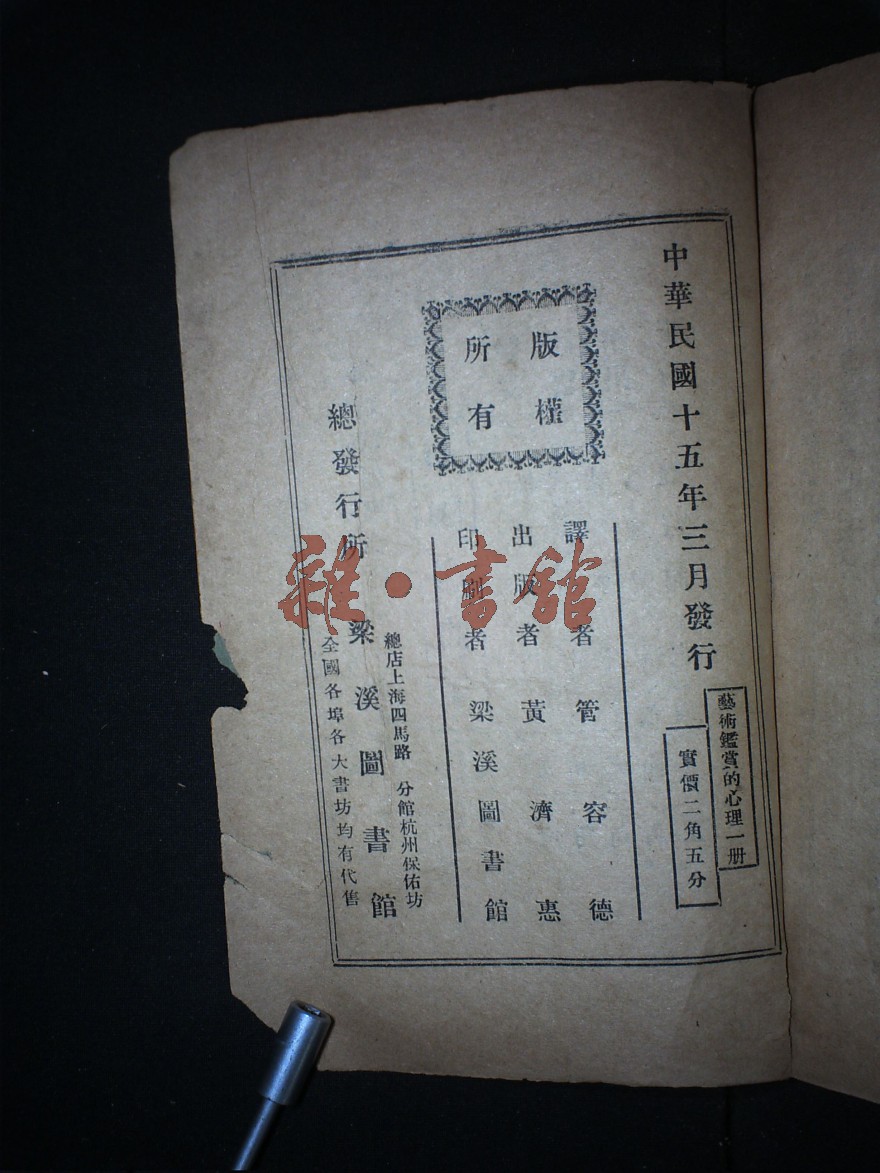 中華民國十五年三月發行
藝術鑑賞的心理一册
實價二角五分
版權
所有
譯者 管容德
出版者 黃濟惠
印刷者 梁溪圖書館
總發行所 梁溪圖書館
總店上海四馬路 分館杭州保佑坊
全國各埠各大書坊均有代售
雜·書館